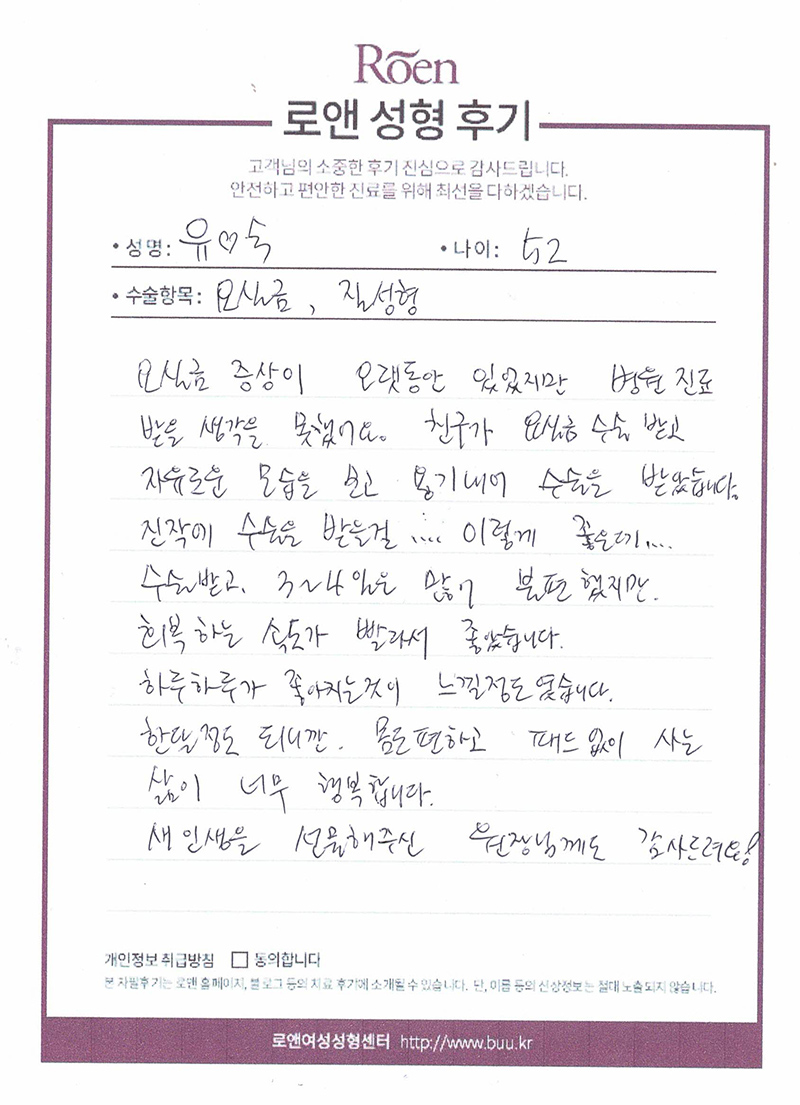 Rōen
로앤 성형 후기
고객님의 소중한 후기 진심으로 감사드립니다.
안전하고 편안한 진료를 위해 최선을 다하겠습니다.
• 성명: 유♡숙 • 나이: 52
• 수술항목: 요실금, 질성형
요실금 증상이 오랫동안 있었지만 병원 진료
받을 생각을 못했어요. 친구가 요실금 수술 받고
자유로운 모습을 보고 용기내어 수술을 받았습니다.
진작에 수술을 받을걸 .... 이렇게 좋은데....
수술받고, 3~4일은 많이 불편했지만.
회복하는 속도가 빨라서 좋았습니다.
하루하루가 좋아지는것이 느낄정도였습니다.
한달정도 되니깐. 몸도편하고 패드없이 사는
삶이 너무 행복합니다.
새인생을 선물해주신 원장님께도 감사드려요!
개인정보 취급방침 □ 동의합니다
본 자필후기는 로앤 홈페이지, 블로그 등의 치료 후기에 소개될 수 있습니다. 단, 이름 등의 신상정보는 절대 노출되지 않습니다.
로앤여성성형센터 http://www.buu.kr